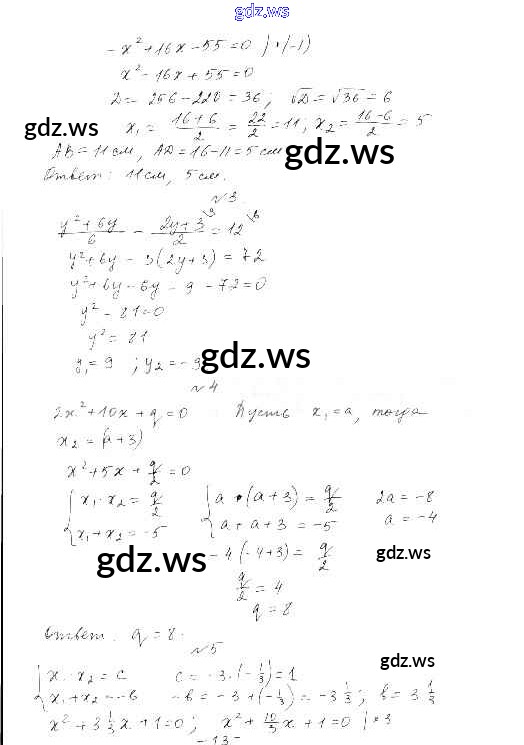 gdz.ws
-x² + 16x - 55 = 0 | ·(-1)
x² - 16x + 55 = 0
D = 256 - 220 = 36; √D = √36 = 6
x₁ = (16+6)/2 = 22/2 = 11; x₂ = (16-6)/2 = 5
gdz.ws
AB = 11 см, AD = 16 - 11 = 5 см
gdz.ws
Ответ: 11 см, 5 см.
№3.
(y² + 6y)/6 - (2y + 3)/2 \3 = 12 \6
y² + 6y - 3(2y + 3) = 72
y² + 6y - 6y - 9 - 72 = 0
y² - 81 = 0
y² = 81
y₁ = 9 ; y₂ = -9
gdz.ws
№4
2x² + 10x + q = 0 Пусть x₁ = a, тогда
x₂ = (a + 3)
x² + 5x + q/2 = 0
{ x₁ · x₂ = q/2 { a · (a + 3) = q/2 2a = -8
{ x₁ + x₂ = -5 { a + a + 3 = -5 a = -4
gdz.ws
-4(-4+3) = q/2
gdz.ws
q/2 = 4
q = 8
Ответ: q = 8.
№5
gdz.ws
{ x₁ · x₂ = c c = -3 · (-1/3) = 1
{ x₁ + x₂ = -b -b = -3 + (-1/3) = -3 1/3; b = 3 1/3
x² + 3 1/3 x + 1 = 0; x² + 10/3 x + 1 = 0 | · 3
-13-